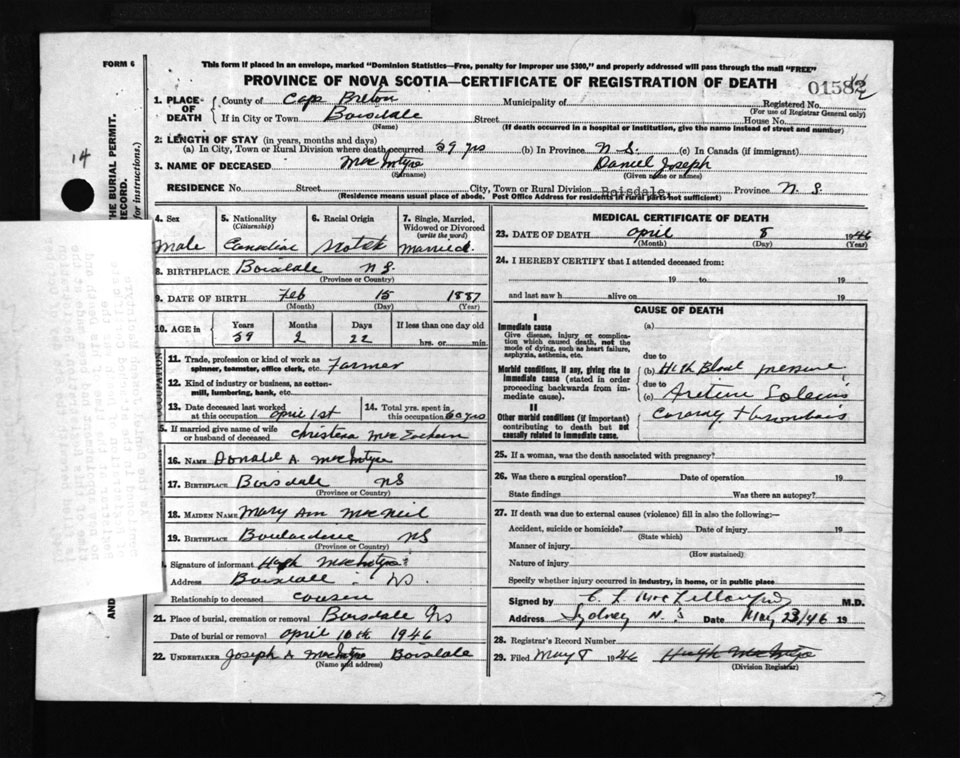 FORM 6
This form if placed in an envelope, marked "Dominion Statistics—Free, penalty for improper use $300," and properly addressed will pass through the mail "FREE"
PROVINCE OF NOVA SCOTIA—CERTIFICATE OF REGISTRATION OF DEATH
01582
1. PLACE OF DEATH
County of Cape Breton Municipality of Registered No.
(For use of Registrar General only)
If in City or Town Boisdale Street House No.
(Name) (If death occurred in a hospital or institution, give the name instead of street and number)
14
2. LENGTH OF STAY (in years, months and days)
(a) In City, Town or Rural Division where death occurred 59 yrs (b) In Province N S. (c) In Canada (if immigrant)
3. NAME OF DECEASED MacIntyre Daniel Joseph
(Surname) (Given name or names)
RESIDENCE No. Street City, Town or Rural Division Boisdale, Province N S.
(Residence means usual place of abode. Post Office Address for residents of rural parts not sufficient)
THE BURIAL PERMIT.
RECORD.
for instructions.)
4. Sex
Male
5. Nationality
(Citizenship)
Canadian
6. Racial Origin
Scotch
7. Single, Married, Widowed or Divorced
(write the word)
Married.
8. BIRTHPLACE Boisdale NS.
(Province or Country)
9. DATE OF BIRTH Feb 15 1887
(Month) (Day) (Year)
10. AGE in Years Months Days If less than one day old
59 2 22 hrs. or min.
OCCUPATION
11. Trade, profession or kind of work as spinner, teamster, office clerk, etc. Farmer
12. Kind of industry or business, as cotton-mill, lumbering, bank, etc.
13. Date deceased last worked at this occupation April 1st
14. Total yrs. spent in this occupation yrs
5. If married give name of wife or husband of deceased Christena Mac Eachern
16. NAME Donald A. MacIntyre
17. BIRTHPLACE Boisdale NS
(Province or Country)
18. MAIDEN NAME Mary Ann MacNeil
19. BIRTHPLACE Boularderie NS
(Province or Country)
Signature of informant Hugh MacIntyre
Address Boisdale NS.
Relationship to deceased cousin
21. Place of burial, cremation or removal Boisdale NS
Date of burial or removal April 10th 1946
22. UNDERTAKER Joseph A MacIntyre Boisdale
(Name and address)
MEDICAL CERTIFICATE OF DEATH
23. DATE OF DEATH April 8 1946
(Month) (Day) (Year)
24. I HEREBY CERTIFY that I attended deceased from:
19 to 19
and last saw h alive on 19
CAUSE OF DEATH
I
Immediate cause
Give disease, injury or complication which caused death, not the mode of dying, such as heart failure, asphyxia, asthenia, etc.
(a)
due to
Morbid conditions, if any, giving rise to immediate cause (stated in order proceeding backwards from immediate cause).
(b) High Blood pressure
due to
(c)
II
Other morbid conditions (if important) contributing to death but not causally related to immediate cause.
Coronary thrombosis
25. If a woman, was the death associated with pregnancy?
26. Was there a surgical operation? Date of operation 19
State findings Was there an autopsy?
27. If death was due to external causes (violence) fill in also the following:—
Accident, suicide or homicide? Date of injury 19
(State which)
Manner of injury
(How sustained)
Nature of injury
Specify whether injury occurred in industry, in home, or in public place
Signed by M.D.
Address Sydney N. S Date May 23/46 19
28. Registrar's Record Number
29. Filed May 8 1946 Hugh MacIntyre
(Division Registrar)